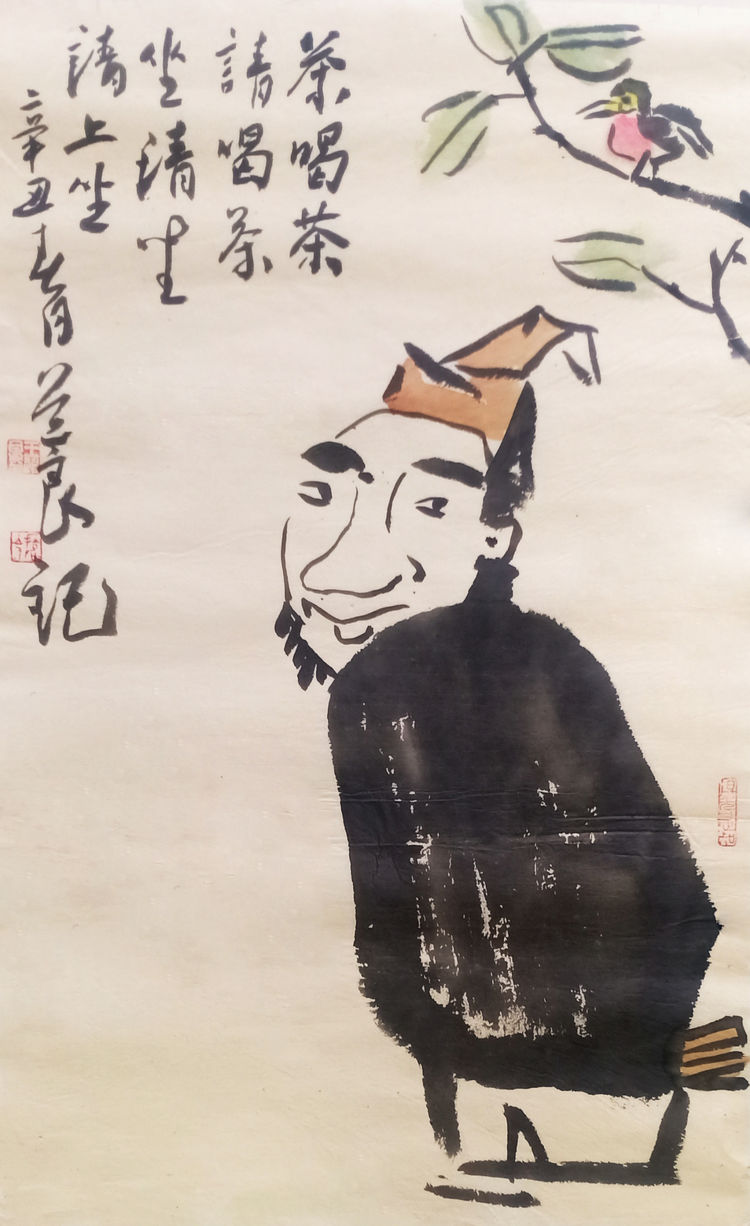 茶喝茶
請喝茶
坐請坐
請上坐
辛丑春月兰良記